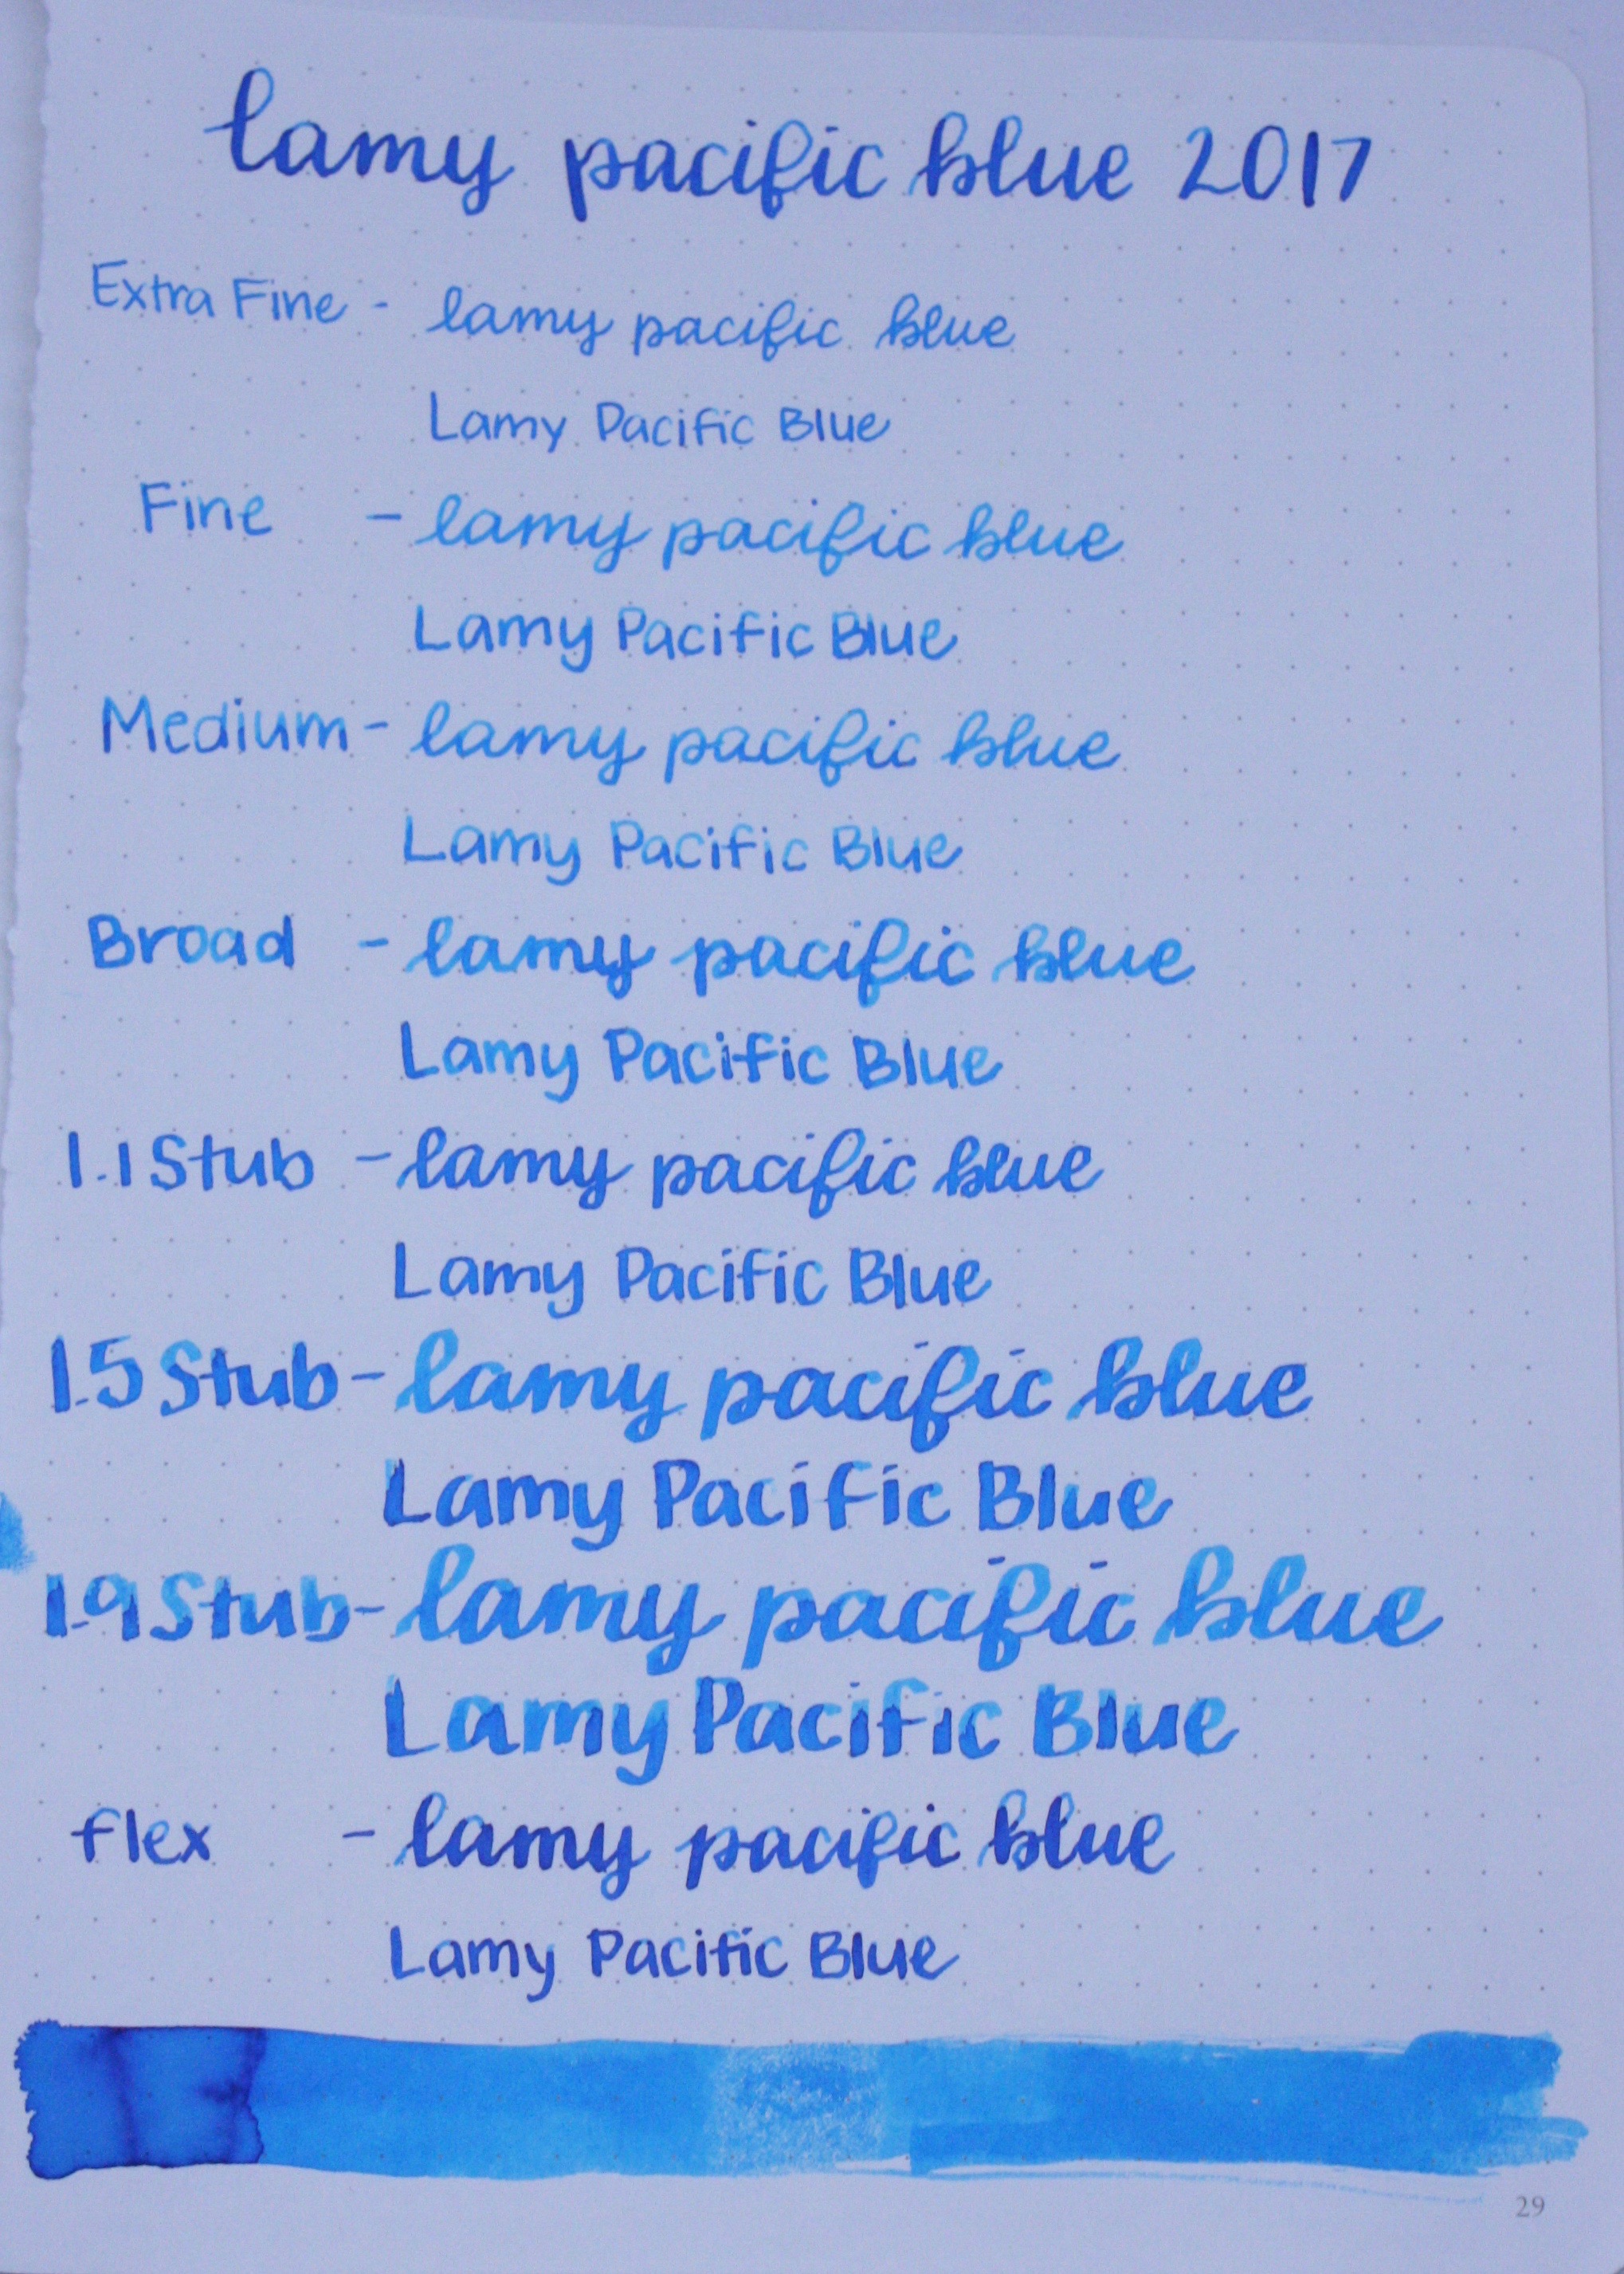 lamy pacific blue 2017
Extra Fine - lamy pacific blue
Lamy Pacific Blue
Fine - lamy pacific blue
Lamy Pacific Blue
Medium - lamy pacific blue
Lamy Pacific Blue
Broad - lamy pacific blue
Lamy Pacific Blue
1.1 Stub - lamy pacific blue
Lamy Pacific Blue
1.5 Stub - lamy pacific blue
Lamy Pacific Blue
1.9 Stub - lamy pacific blue
Lamy Pacific Blue
flex - lamy pacific blue
Lamy Pacific Blue
29